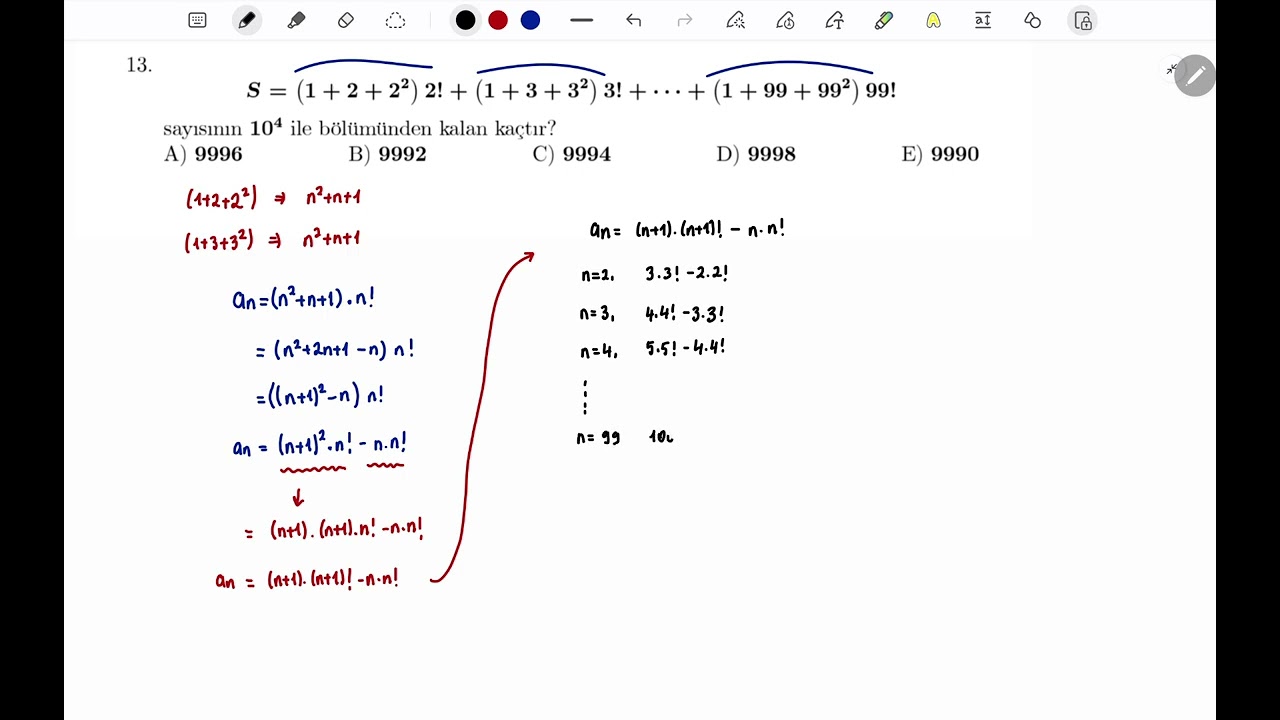 13.
S = (1 + 2 + 2²) 2! + (1 + 3 + 3²) 3! + ⋯ + (1 + 99 + 99²) 99!
sayısının 10⁴ ile bölümünden kalan kaçtır?
A) 9996 B) 9992 C) 9994 D) 9998 E) 9990
(1+2+2²) ⇒ n²+n+1
(1+3+3²) ⇒ n²+n+1
an=(n²+n+1).n!
= (n²+2n+1 -n) n!
=((n+1)²-n) n!
an = (n+1)².n! - n.n!
↓
= (n+1).(n+1).n! -n.n!
an = (n+1).(n+1)! -n.n!
an= (n+1).(n+1)! - n.n!
n=2, 3.3! -2.2!
n=3, 4.4! -3.3!
n=4, 5.5! -4.4!
n= 99 10